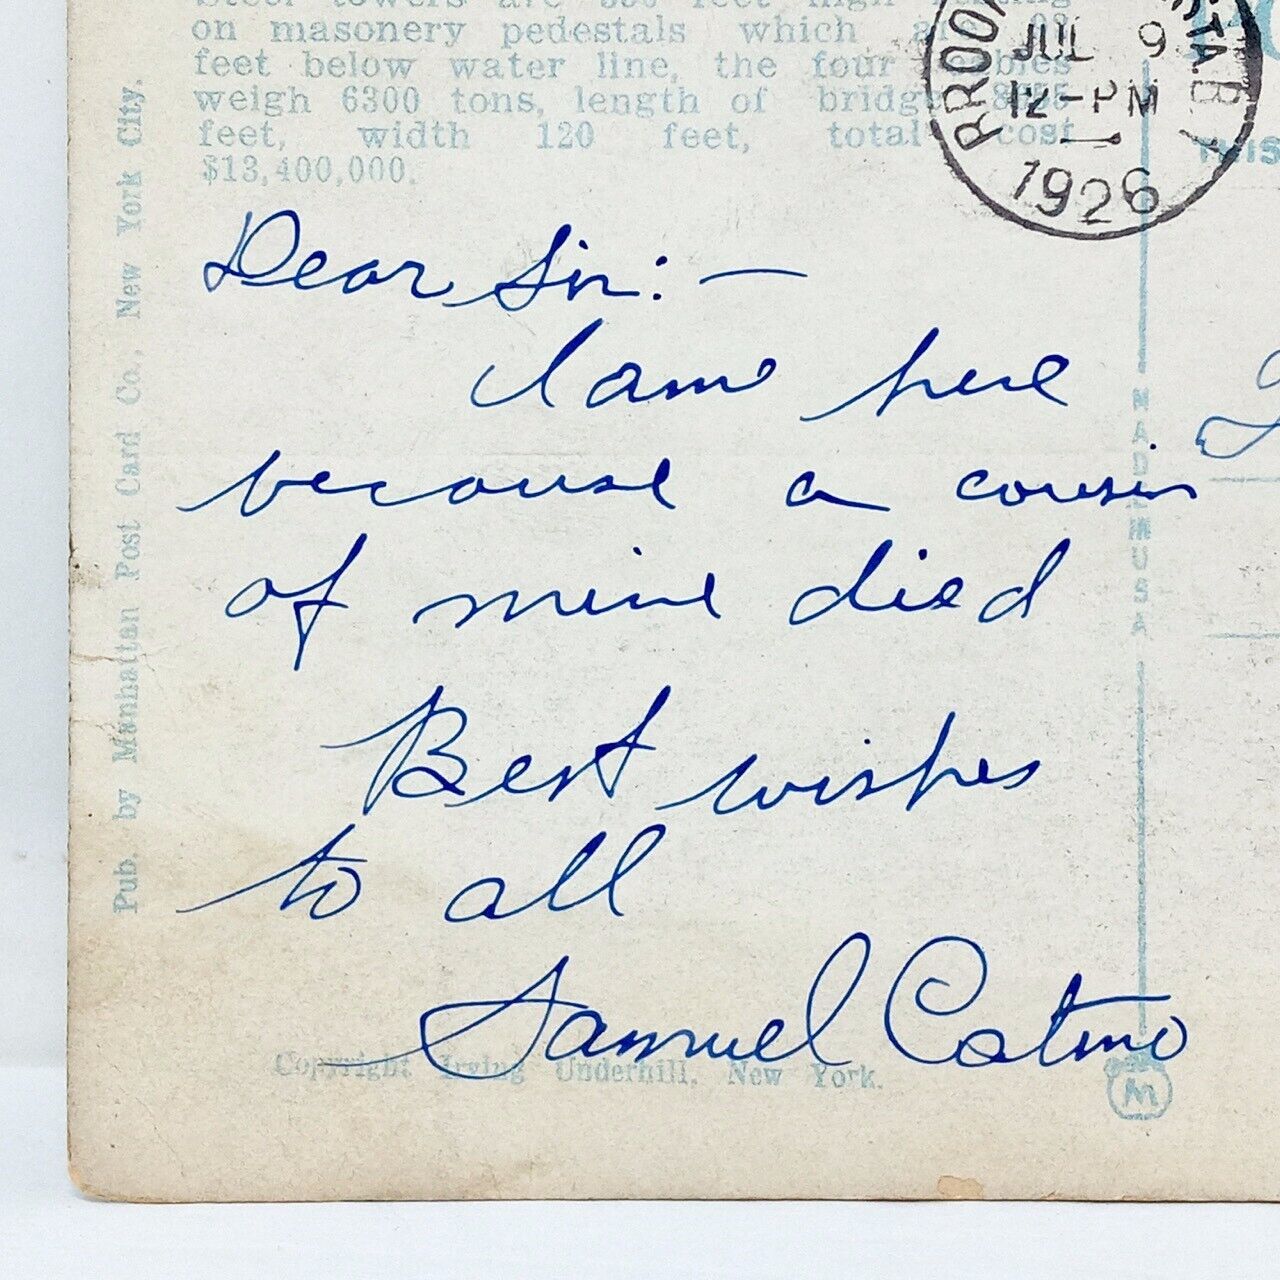 Steel towers are 350 feet high
on masonery pedestals which are 98
feet below water line, the four cables
weigh 6300 tons, length of bridge
feet, width 120 feet, total cost
$13,400,000.
JUL 9
12-PM
1926
THIS
Dear Sir:—
I am here
because a cousin
of mine died
Best wishes
to all
Samuel Catino
Copyright Irving Underhill, New York.
Pub. by Manhattan Post Card Co., New York City.
MADE IN USA
M